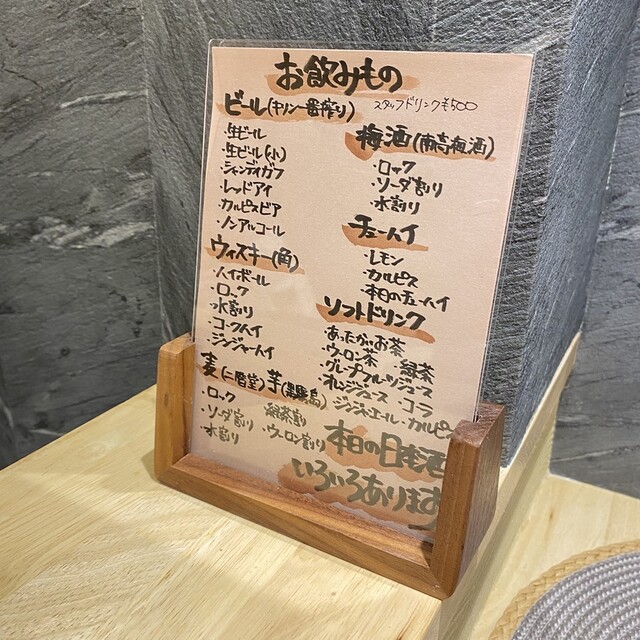 お飲みもの
ビール(キリン一番搾り)
スタッフドリンク¥500
・生ビール
・生ビール(小)
・シャンディガフ
・レッドアイ
・カルピスビア
・ノンアルコール
ウィスキー(角)
・ハイボール
・ロック
・水割り
・コークハイ
・ジンジャーハイ
麦(二階堂)芋(黒霧島)
・ロック
・ソーダ割り
・水割り
・緑茶割り
・ウーロン割り
梅酒(南高梅酒)
・ロック
・ソーダ割り
・水割り
チューハイ
・レモン
・カルピス
・本日のチューハイ
ソフトドリンク
・あったかいお茶
・ウーロン茶 ・緑茶
・グレープフルーツジュース
・オレンジジュース ・コーラ
・ジンジャエール ・カルピス
本日の日本酒
いろいろあります